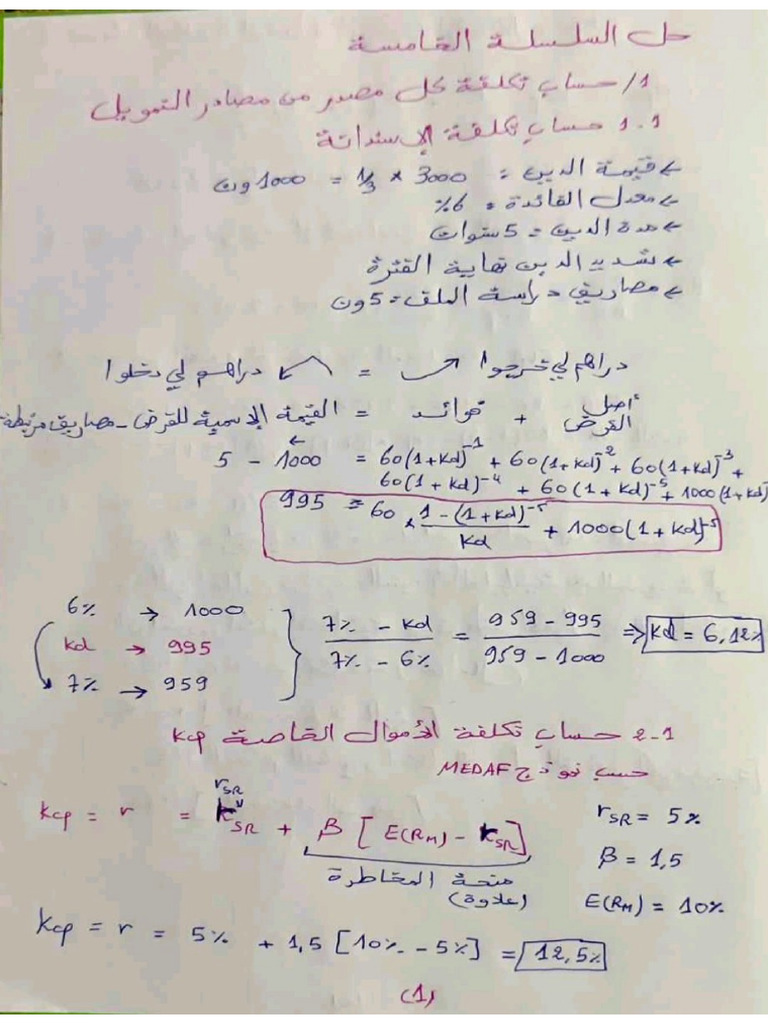 حل السلسلة الخامسة
1/ حساب تكلفة كل مصدر من مصادر التمويل
1-1 حساب تكلفة الإستدانة
← قيمة الدين = 3000 × 1/3 = 1000 ون
← معدل الفائدة = 6%
← مدة الدين = 5 سنوات
← تسديد الدين نهاية الفترة
← مصاريف دراسة الملف = 5 ون
دراهم لي خرجوا = دراهم لي دخلوا
أصل القرض + فوائد = القيمة الإسمية للقرض - مصاريف مرتبطة
5 - 1000 = 60(1+Kd)^-1 + 60(1+Kd)^-2 + 60(1+Kd)^-3 +
60(1+Kd)^-4 + 60(1+Kd)^-5 + 1000(1+Kd)
995 = 60 × (1-(1+Kd)^-5)/Kd + 1000(1+Kd)^-5
6% → 1000
Kd → 995
7% → 959
(7% - Kd)/(7% - 6%) = (959 - 995)/(959 - 1000) ⇒ Kd = 6,12%
2-1 حساب تكلفة الأموال الخاصة Kcp
حسب نموذج MEDAF
rSR
Kcp = r = rSR + β [E(RM) - rSR]
منحة المخاطرة
(علاوة)
rSR = 5%
β = 1,5
E(RM) = 10%
Kcp = r = 5% + 1,5 [10% - 5%] = 12,5%
(1)